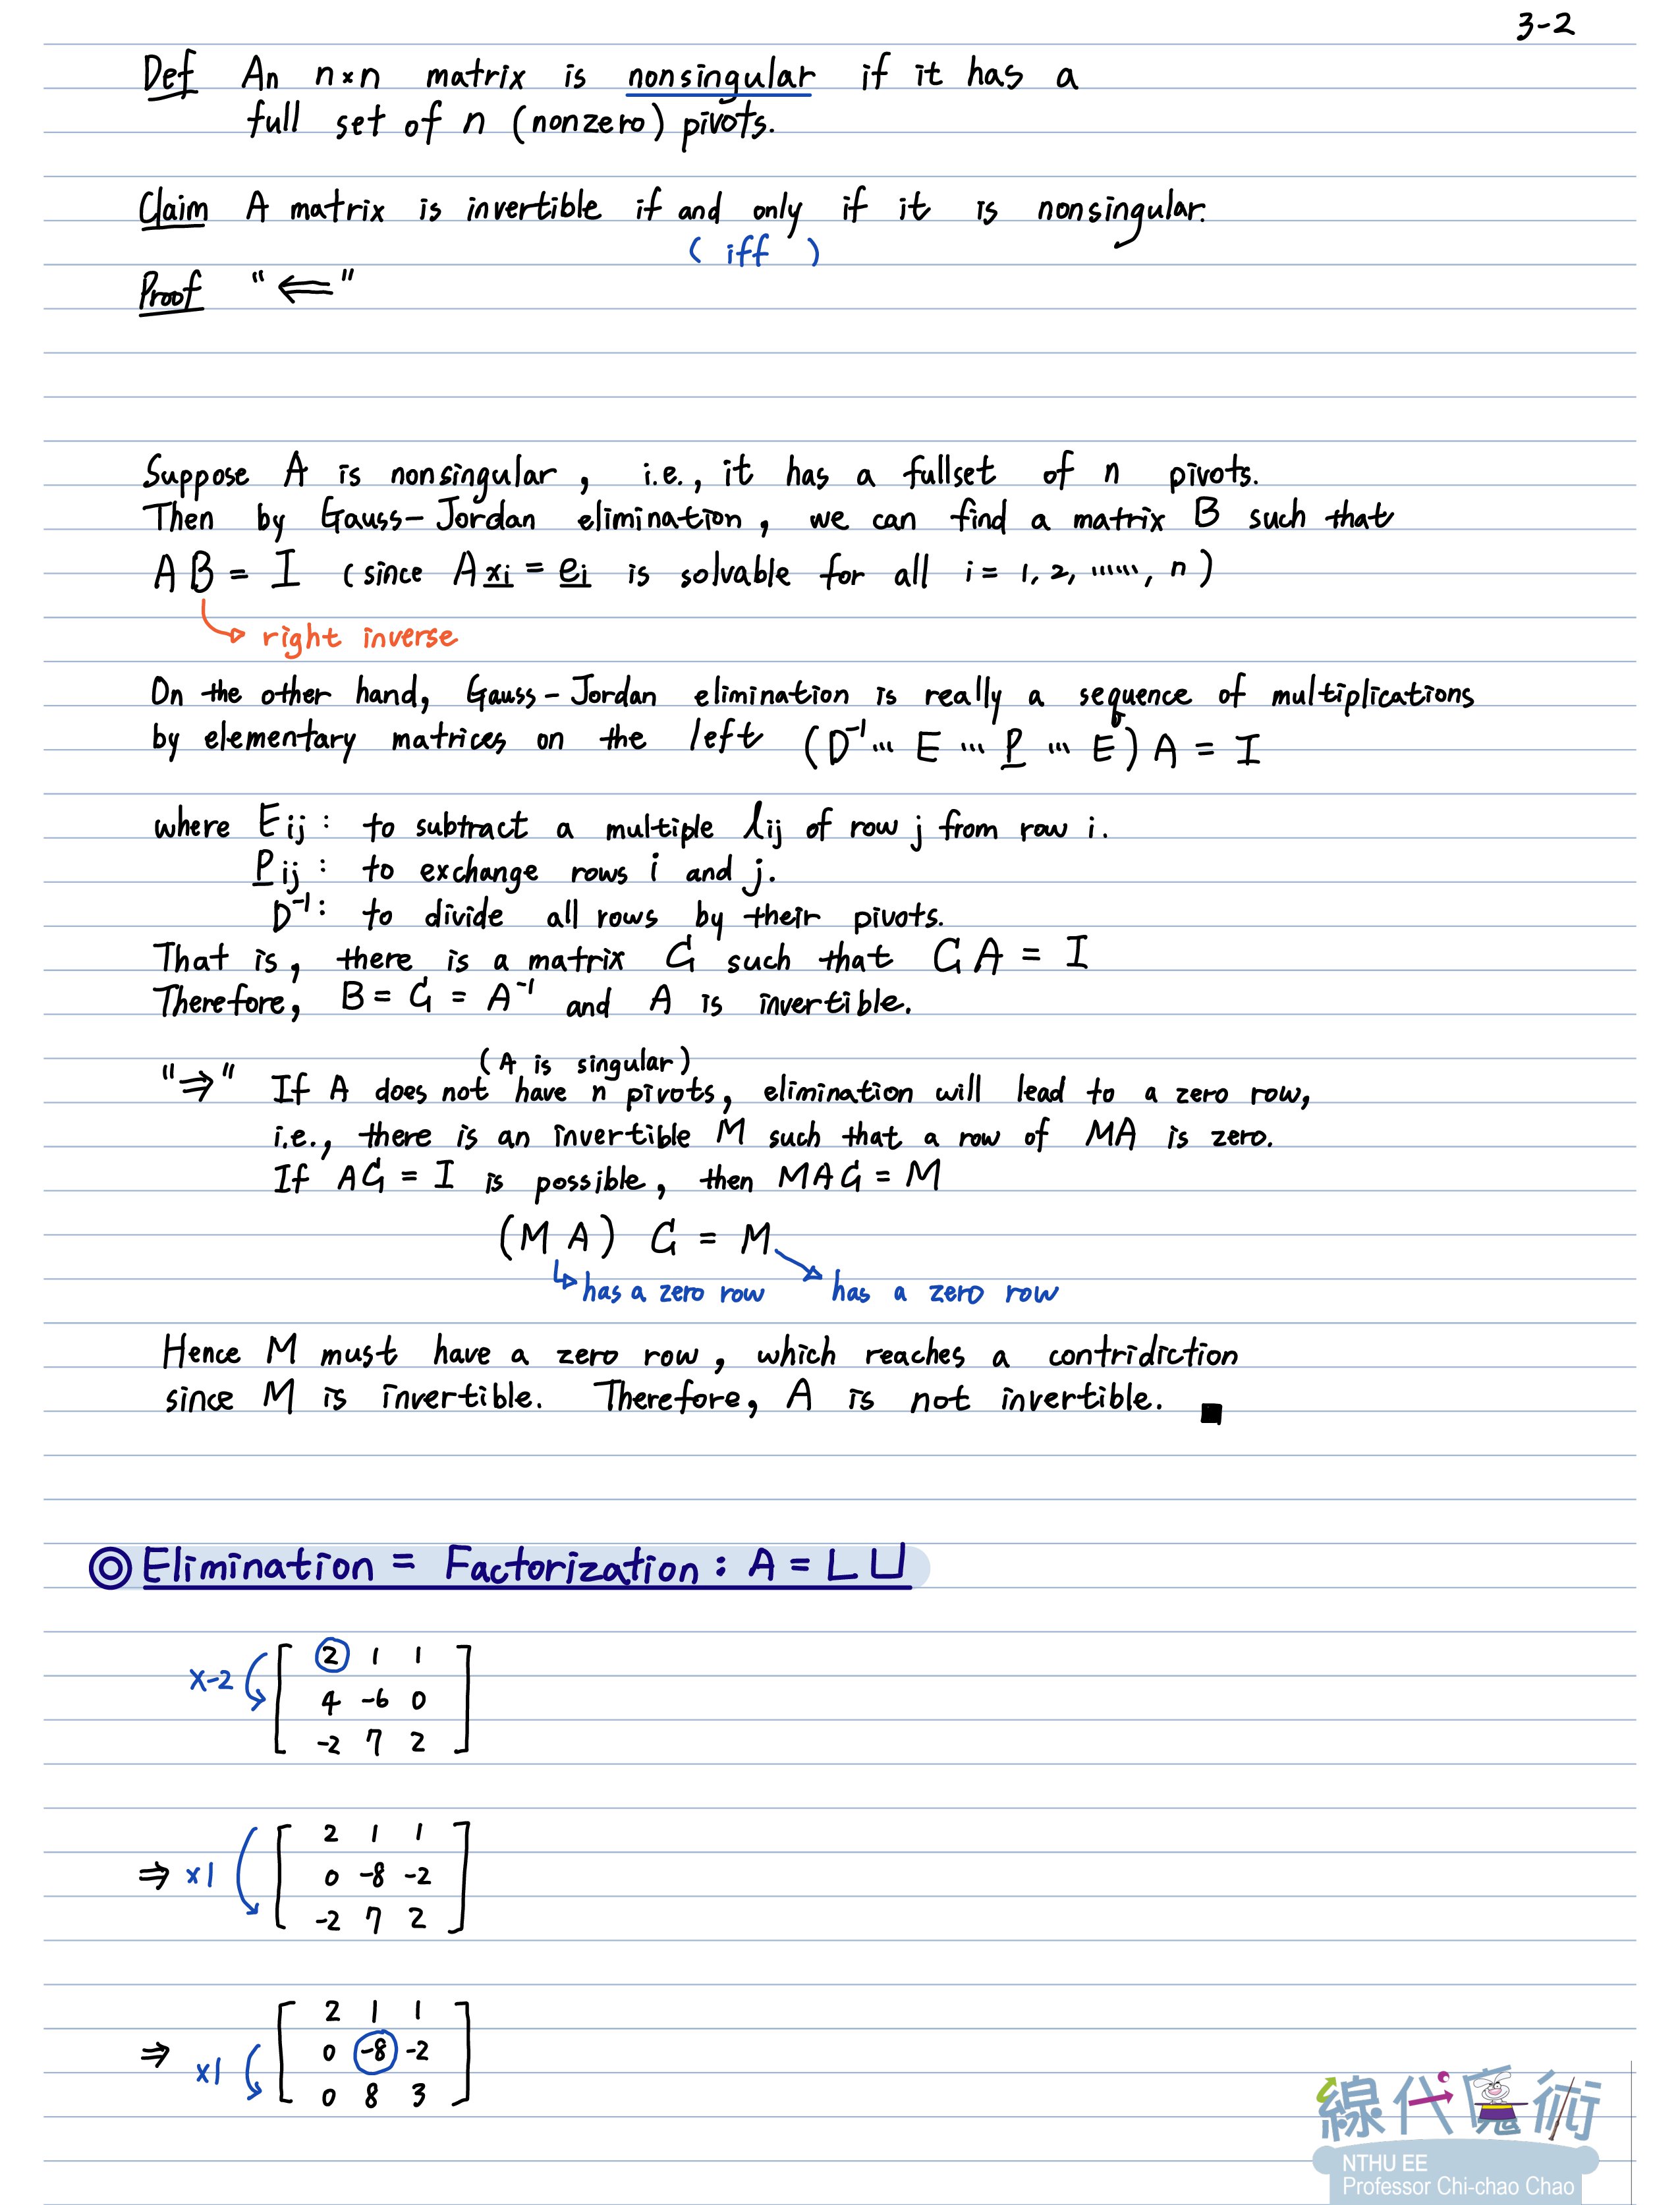 3-2
Def An n×n matrix is nonsingular if it has a
full set of n (nonzero) pivots.
Claim A matrix is invertible if and only if it is nonsingular.
( iff )
Proof "⇐"
Suppose A is nonsingular, i.e., it has a fullset of n pivots.
Then by Gauss-Jordan elimination, we can find a matrix B such that
AB = I (since Axi = ei is solvable for all i = 1, 2, ……, n)
right inverse
On the other hand, Gauss-Jordan elimination is really a sequence of multiplications
by elementary matrices on the left (D⁻¹ … E … P … E) A = I
where Eij : to subtract a multiple lij of row j from row i.
Pij : to exchange rows i and j.
D⁻¹ : to divide all rows by their pivots.
That is, there is a matrix C such that CA = I
Therefore, B = C = A⁻¹ and A is invertible.
(A is singular)
"⇒" If A does not have n pivots, elimination will lead to a zero row,
i.e., there is an invertible M such that a row of MA is zero.
If AC = I is possible, then MAC = M
(MA) C = M
has a zero row has a zero row
Hence M must have a zero row, which reaches a contridiction
since M is invertible. Therefore, A is not invertible. ■
◎ Elimination = Factorization : A = LU
2 1 1
x-2 4 -6 0
-2 7 2
2 1 1
⇒ x1 0 -8 -2
-2 7 2
2 1 1
⇒ x1 0 -8 -2
0 8 3
線代魔術
NTHU EE
Professor Chi-chao Chao